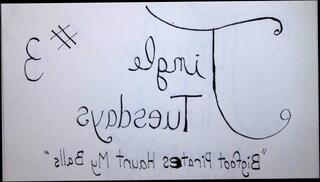 Tingle
Tuesdays
#3
"Bigfoot Pirates Haunt My Balls"